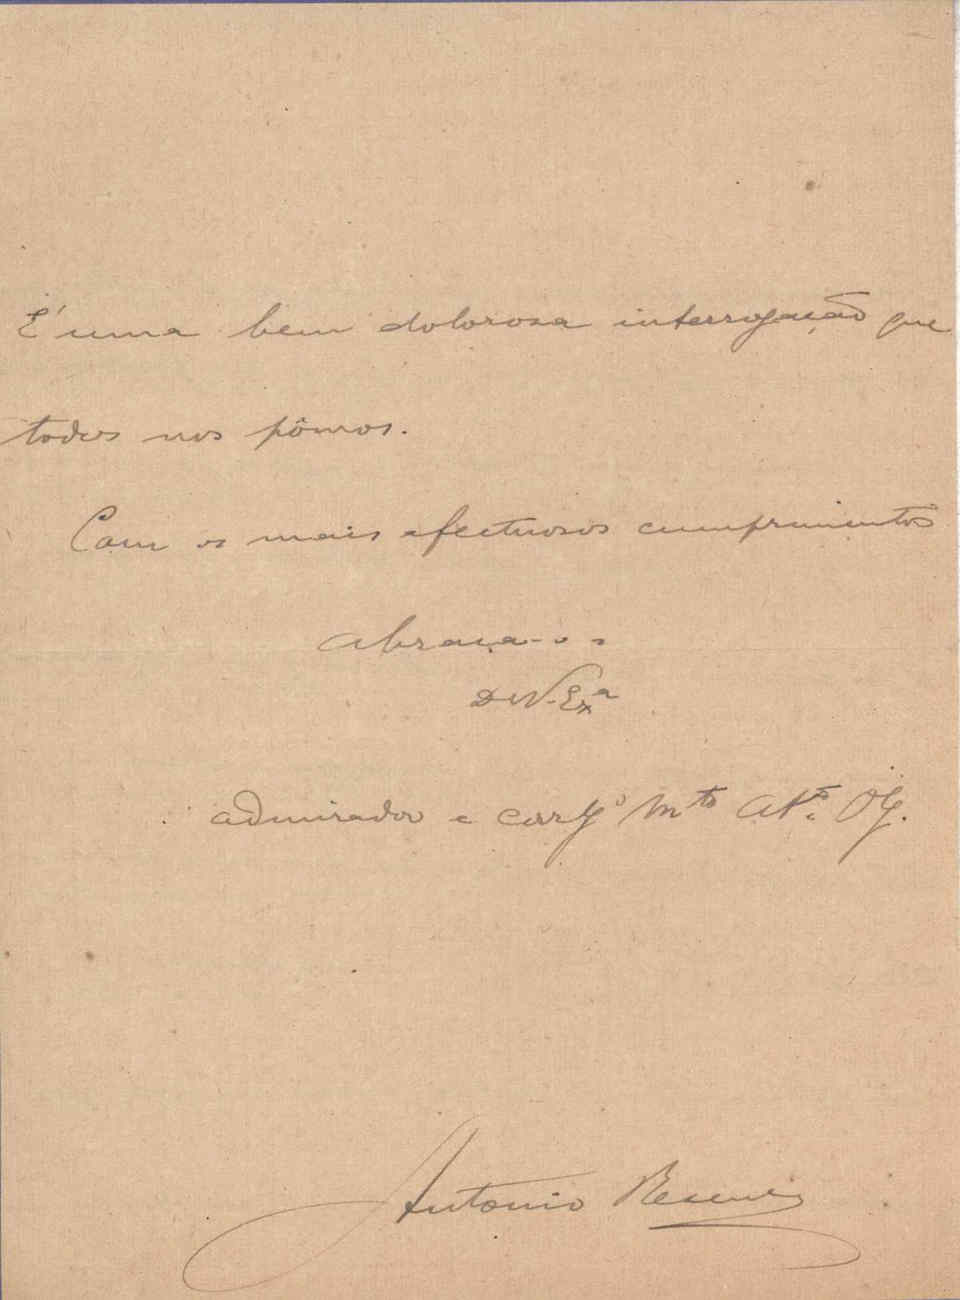 É uma bem dolorosa interrogação que
todos nos pômos.
Com os mais afectuosos cumprimentos
abraça-o o
De V. Exª
admirador e corrgº mtº atº Obg.
Antonio